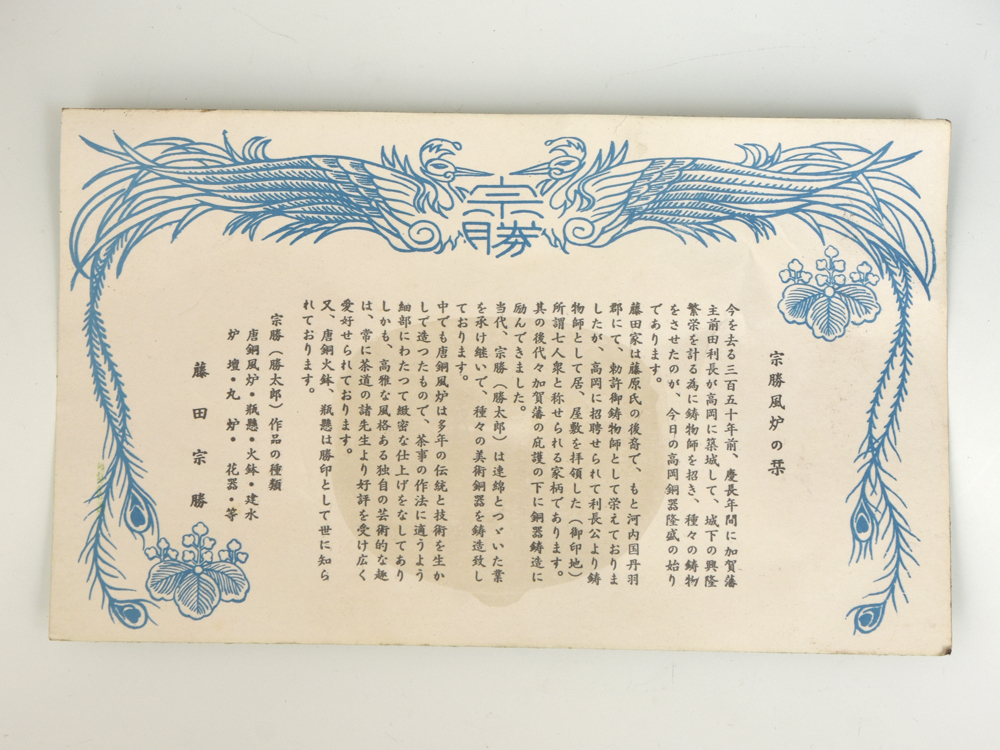 宗勝
宗勝風炉の栞
今を去る三百五十年前、慶長年間に加賀藩
主前田利長が高岡に築城して、城下の興隆
繁栄を計る為に鋳物師を招き、種々の鋳物
をさせたのが、今日の高岡銅器隆盛の始り
であります。
藤田家は藤原氏の後裔で、もと河内国丹羽
郡にて、勅許御鋳物師として栄えておりま
したが、高岡に招聘せられて利長公より鋳
物師として居、屋敷を拝領した（御印地）
所謂七人衆と称せられる家柄であります。
其の後代々加賀藩の庇護の下に銅器鋳造に
励んできました。
当代、宗勝（勝太郎）は連綿とつゞいた業
を承け継いで、種々の美術銅器を鋳造致し
ております。
中でも唐銅風炉は多年の伝統と技術を生か
して造つたもので、茶事の作法に適うよう
細部にわたつて緻密な仕上げをなしてあり
しかも、高雅な風格ある独自の芸術的な趣
は、常に茶道の諸先生より好評を受け広く
愛好せられております。
又、唐銅火鉢、瓶懸は勝印として世に知ら
れております。
宗勝（勝太郎）作品の種類
唐銅風炉・瓶懸・火鉢・建水
炉壇・丸炉・花器・等
藤田宗勝